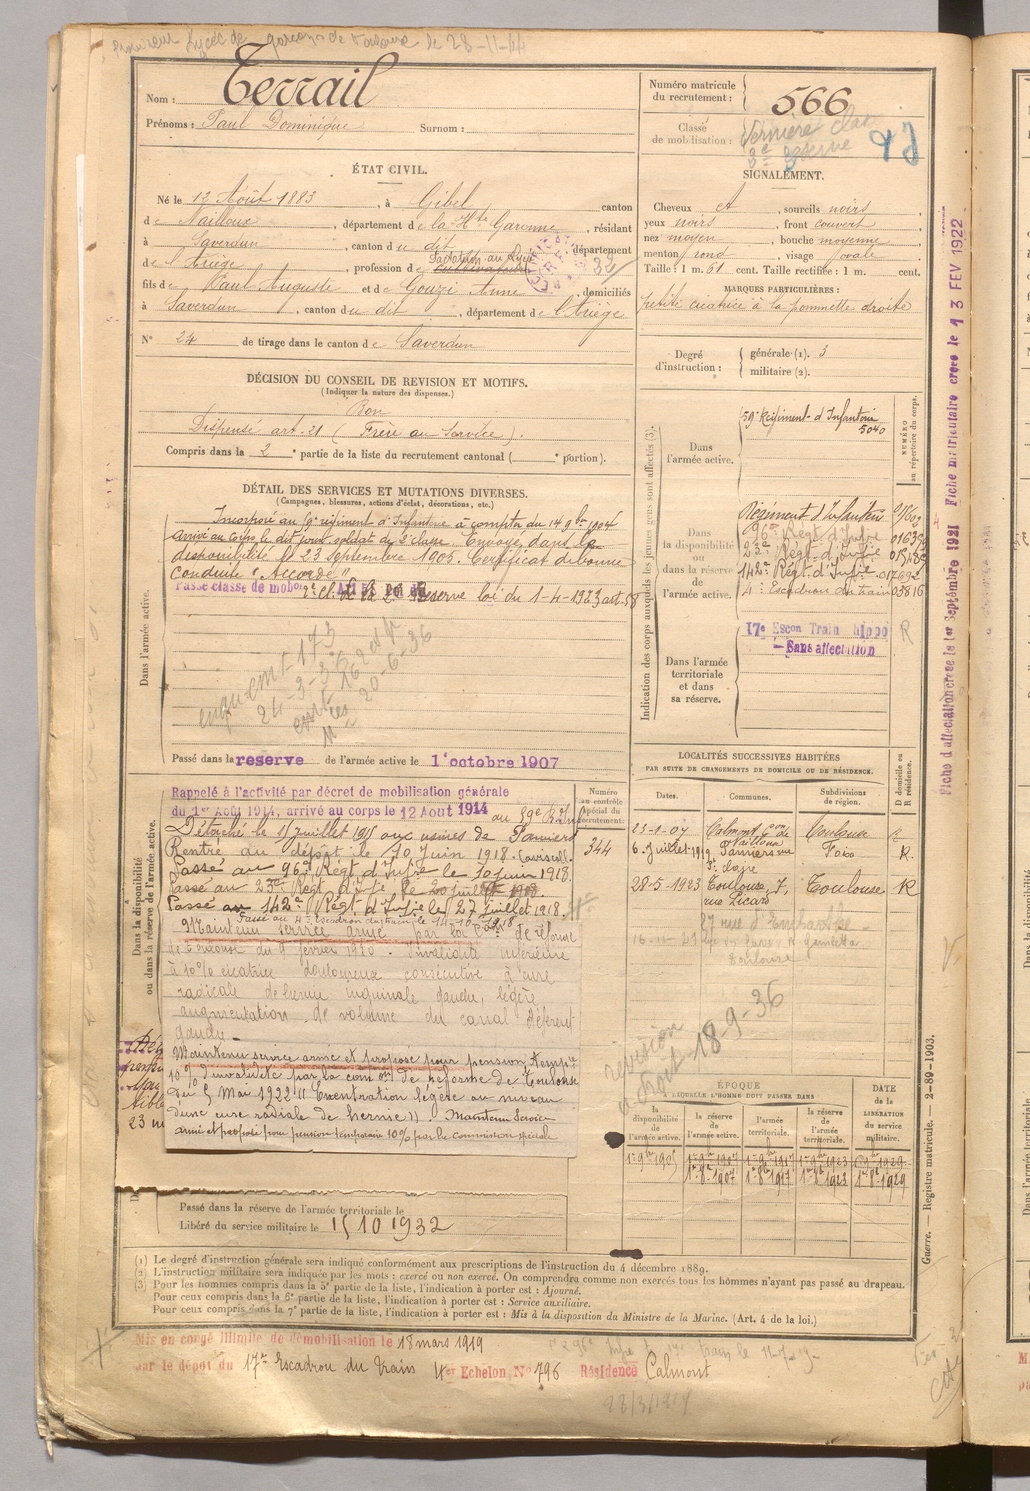 Lycée de garçons de Toulouse le 28-11-44
Nom : Terrail
Prénoms : Paul Dominique Surnom :
Numéro matricule
du recrutement : 566
Classe
de mobilisation : Dernière
2e Réserve
ÉTAT CIVIL.
Né le 12 Août 1883, à Gibel canton
de Nailloux, département de la Hte Garonne, résidant
à Saverdun, canton du dit, département
de l'Ariège, profession de cultivateur
fils de Paul Auguste et de Gouzi Anne, domiciliés
à Saverdun, canton du dit, département de l'Ariège
N° 24 de tirage dans le canton de Saverdun
SIGNALEMENT.
Cheveux et, sourcils noirs,
yeux noirs, front couvert
nez moyen, bouche moyenne
menton rond, visage ovale
Taille : 1 m. 61 cent. Taille rectifiée : 1 m. cent.
MARQUES PARTICULIÈRES :
petite cicatrice à la pommette droite
Degré
d'instruction : générale (1). 3
militaire (2).
DÉCISION DU CONSEIL DE REVISION ET MOTIFS.
(Indiquer la nature des dispenses.)
Bon
Dispensé art. 21 (Frère au service).
Compris dans la 2e partie de la liste du recrutement cantonal ( e portion).
DÉTAIL DES SERVICES ET MUTATIONS DIVERSES.
(Campagnes, blessures, actions d'éclat, décorations, etc.)
Dans l'armée active.
Incorporé au 9e régiment d'Infanterie à compter du 14 9bre 1904
Arrivé au corps le dit jour soldat de 2e classe. Envoyé dans la
disponibilité le 23 septembre 1905. Certificat de bonne
conduite "Accordé"
Passé classe de mob 2e Réserve loi du 1-4-1923 art. 58
24-3-36
20-6-36
Passé dans la reserve de l'armée active le 1er octobre 1907
Dans la disponibilité
ou dans la réserve de l'armée active.
Rappelé à l'activité par décret de mobilisation générale
du 1er Août 1914, arrivé au corps le 12 Août 1914 au 59e
Détaché le 15 juillet 1915 aux usines de Pamiers
Rentré au dépôt le 10 Juin 1918.
Passé au 96e Régt d'Infie le 10 juin 1918.
Passé au 23e Régt d'Infie le 20 juillet 1918.
Passé au 142e Régt d'Infie le 27 juillet 1918.
Passé au 4e Escadron du train le 14-10-1918
Maintenu service armé par la de réforme
de Toulouse du 9 février 1920. Invalidité inférieure
à 10% cicatrice douloureuse consécutive à cure
radicale de hernie inguinale gauche, légère
augmentation de volume du canal déférent
gauche.
Maintenu service armé et proposé pour pension tempre
10% d'invalidité par la com on de réforme de Toulouse
du 5 Mai 1922 légère au niveau
d'une cure radicale de hernie)). Maintenu service
armé et proposé pour pension temporaire 10% par la Commission spéciale
23
Numéro
au contrôle
spécial du
recrutement.
344
Passé dans la réserve de l'armée territoriale le
Libéré du service militaire le 15 10 1932
Indication des corps auxquels les jeunes gens sont affectés (3).
NUMÉRO
au répertoire du corps.
Dans
l'armée active.
59e Régiment d'Infanterie
5040
Dans
la disponibilité
ou
dans la réserve
de
l'armée active.
Régiment d'Infanterie
96e Régt d'Infie
23e Régt d'Infie
142e Régt d'Infie 017692
4e Escadron du train 03816
Dans l'armée
territoriale
et dans
sa réserve.
17e Escon Train hippo R
Sans affectation
LOCALITÉS SUCCESSIVES HABITÉES
PAR SUITE DE CHANGEMENTS DE DOMICILE OU DE RÉSIDENCE.
Dates. Communes. Subdivisions
de région. D domicile ou
R résidence.
23-1-07 Calmont con de Nailloux Toulouse R
6-Juillet-1919 Pamiers rue Ste Claire Foix R.
28-5-1923 Toulouse, 7, rue Ricard Toulouse R
27 rue d'Embarthe
Toulouse
revision
droit 18-9-36
ÉPOQUE
À LAQUELLE L'HOMME DOIT PASSER DANS
la
disponibilité
de
l'armée active.
la réserve
de
l'armée active.
l'armée
territoriale.
la réserve
de
l'armée
territoriale.
DATE
de la
LIBÉRATION
du service
militaire.
1er 9bre 1905 1er 9bre 1907 1er 9bre 1917 1er 9bre 1923 1er 9bre 1929
1er 8bre 1907 1er 8bre 1917 1er 8bre 1923 1er 8bre 1929
(1) Le degré d'instruction générale sera indiqué conformément aux prescriptions de l'instruction du 4 décembre 1889.
(2) L'instruction militaire sera indiquée par les mots : exercé ou non exercé. On comprendra comme non exercés tous les hommes n'ayant pas passé au drapeau.
(3) Pour les hommes compris dans la 5e partie de la liste, l'indication à porter est : Ajourné.
Pour ceux compris dans la 6e partie de la liste, l'indication à porter est : Service auxiliaire.
Pour ceux compris dans la 7e partie de la liste, l'indication à porter est : Mis à la disposition du Ministre de la Marine. (Art. 4 de la loi.)
Mis en congé illimité de démobilisation le 18 mars 1919
par le dépôt du 17e Escadron du Train 4er Echelon No 796 Résidence Calmont
28/3/1919
Fiche d'affectation créée le 1er Septembre 1921 Fiche matriculaire créée le 13 FEV 1922
Guerre. — Registre matricule. — 2-89-1903.